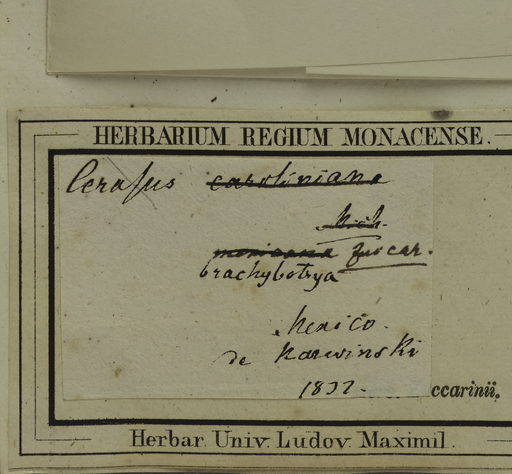 HERBARIUM REGIUM MONACENSE.
Cerasus caroliniana
Mich.
mexicana Zuccar.
brachybotrya
Mexico.
de Karwinski
1832.
ccarinii.
Herbar. Univ. Ludov. Maximil.